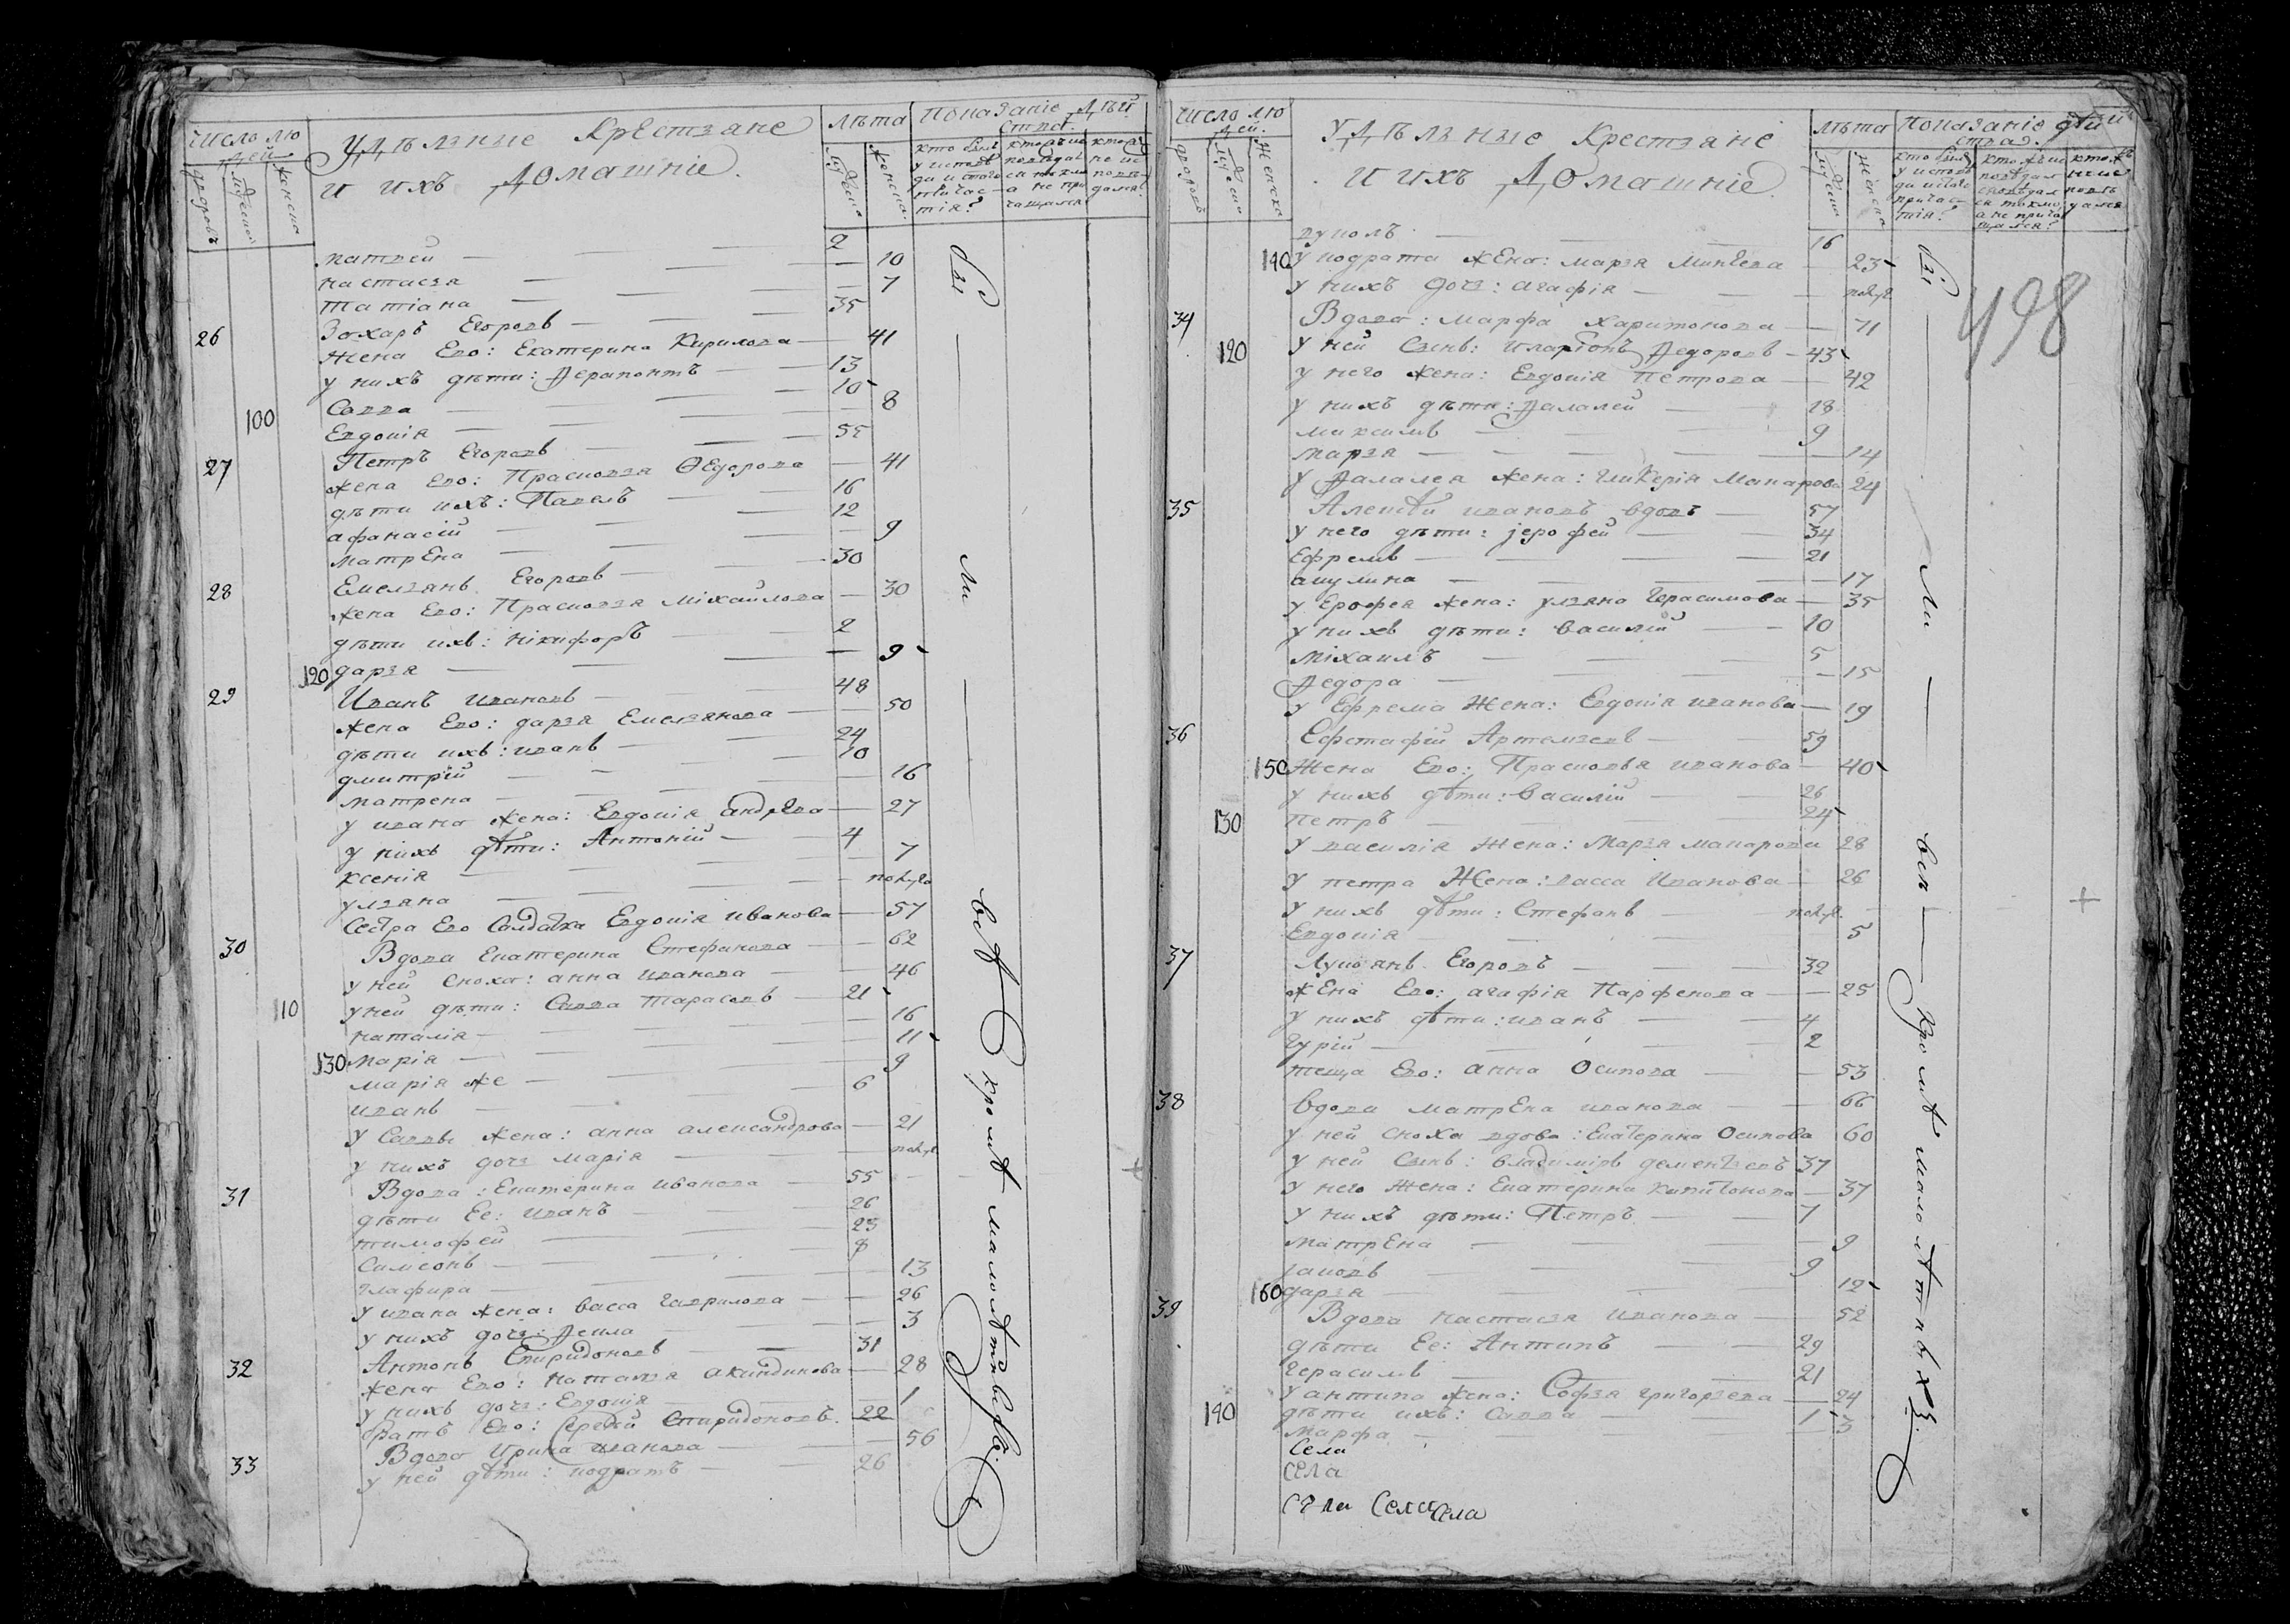 Число лю
дей
дворовъ
мужеска
женска
Удѣльные Крестьяне
и ихъ Домашніе
Лѣта
мужеска
женска
Показаніе дѣйства
кто былъ у исповѣди и святаго причастія?
кто же исповѣдался токмо а не причащался
кто же не исповѣдался
матвей — 2
настасья — 10
татіана — 7
26 Захаръ Егоровъ — 35
Жена Его: Екатерина Кирилова — 41
у нихъ дѣти: Ферапонтъ — 13
100 Савва — 10
Евдокія — 8
27 Петръ Егоровъ — 55
жена Его: Прасковья Ѳедорова — 41
дѣти ихъ: Павелъ — 16
афанасій — 12
матрена — 9
28 Емельянъ Егоровъ — 30
жена Его: Прасковья Міхайлова — 30
дѣти ихъ: нікифоръ — 2
120 дарья — 9
29 Иванъ ивановъ — 48
жена Его: дарья Емельянова — 50
дѣти ихъ: иванъ — 24
дмитрій — 10
матрена — 16
у ивана жена: Евдокія андрѣева — 27
у нихъ дѣти: Антоній — 4
ксенія — 7
ульяна — полуг.
Сестра Его Солдатка Евдокія иванова — 57
30 Вдова Екатерина Стефанова — 62
у ней сноха: анна иванова — 46
110 у ней дѣти: Савва Тарасовъ — 21
наталія — 16
130 марія — 11
марія же — 9
иванъ — 6
у Саввы жена: анна александрова — 21
у нихъ дочь марія — полуг.
31 Вдова: Екатерина иванова — 55
дѣти Ее: иванъ — 26
тимофей — 23
Симеонъ — 8
глафира — 13
у ивана жена: васса гаврилова — 26
у нихъ дочь: Фекла — 3
32 Антонъ Спиридоновъ — 31
жена Его: наталья акиндинова — 28
у нихъ дочь: Евдокія — 1
братъ Его: Сергей Спиридоновъ. 22
33 Вдова Ирина иванова — 56
у ней дѣти: кодратъ — 26
бы — ли — всѣ кромѣ малолѣтныхъ.
Число лю
дей.
дворовъ
мужеска
женска
Удѣльные Крестьяне
и ихъ Домашніе
Лѣта
мужеска
женска
Показаніе дѣйства.
кто былъ у исповѣди и святаго причастія?
кто же исповѣдался токмо, а не причащался?
кто же не исповѣдался
498
вуколъ — 16
140 у кодрата жена: марья Микѣева — 23
у нихъ дочь: агафія — полуг.
34 Вдова: марфа харитонова — 71
120 у ней Сынъ: иларіонъ Федоровъ — 43
у него жена: Евдокія Петрова — 42
у нихъ дѣти: Фалалей — 18
максимъ — 9
марья — 14
у Фалалея жена: гликерія Макарова 24
35 Алексѣй ивановъ вдовъ — 57
у него дѣти: јерофей — 34
Ефремъ — 21
акулина — 17
у Ерофея жена: ульяна Герасимова — 35
у нихъ дѣти: василій — 10
міхаилъ — 5
Федора — 15
у Ефрема Жена: Евдокія иванова — 19
36 Ефстафій Артемьевъ — 59
150 Жена Его: Прасковья иванова — 40
у нихъ дѣти: василій — 26
130 петръ — 24
у василія Жена: Марья макарова 28
у петра Жена: васса Иванова — 26
у нихъ дѣти: Стефанъ — полуг.
Евдокія — 5
37 Лукоянъ Егоровъ — 32
Жена Его: агафія Парфенова — 25
у нихъ дѣти: иванъ — 4
гурій — 2
теща Его: анна Осипова — 53
38 вдова матрена иванова — 66
у ней сноха вдова: Екатерина Осипова 60
у ней Сынъ: владиміръ дементьевъ 37
у него Жена: Екатерина капитонова — 37
у нихъ дѣти: Петръ — 7
матрена — 9
јаковъ — 9
160 дарья — 12
39 Вдова настасья иванова — 52
дѣти Ее: Антипъ — 29
герасимъ — 21
у антипа жена: Софья григорьева — 24
140 дѣти ихъ: Савва — 1
марфа — 3
Села
Села
Села Села Села
бы — ли — всѣ — кромѣ малолѣтныхъ.